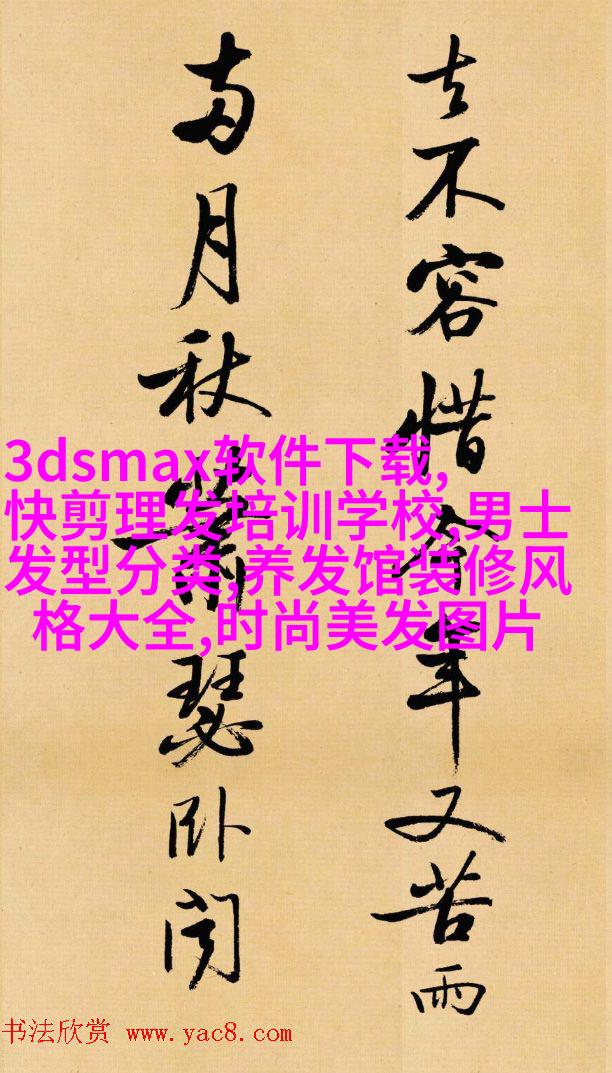 去不容惜今年又苦雨
兩月秋蕭瑟卧聞
3dsmax软件下载,
快剪理发培训学校,男士
发型分类,养发馆装修风
格大全,时尚美发图片
书法欣赏 www.yac8.com